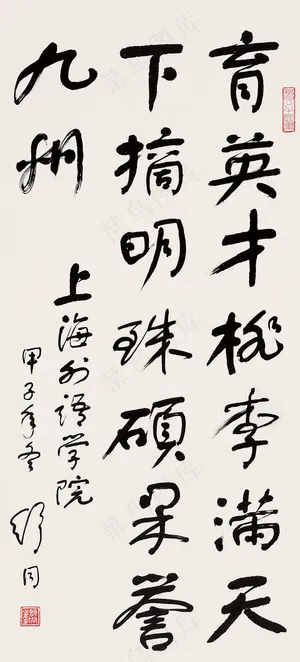 育英才桃李满天
下摘明珠硕果誉
九州
上海外语学院
甲子年冬
舒同